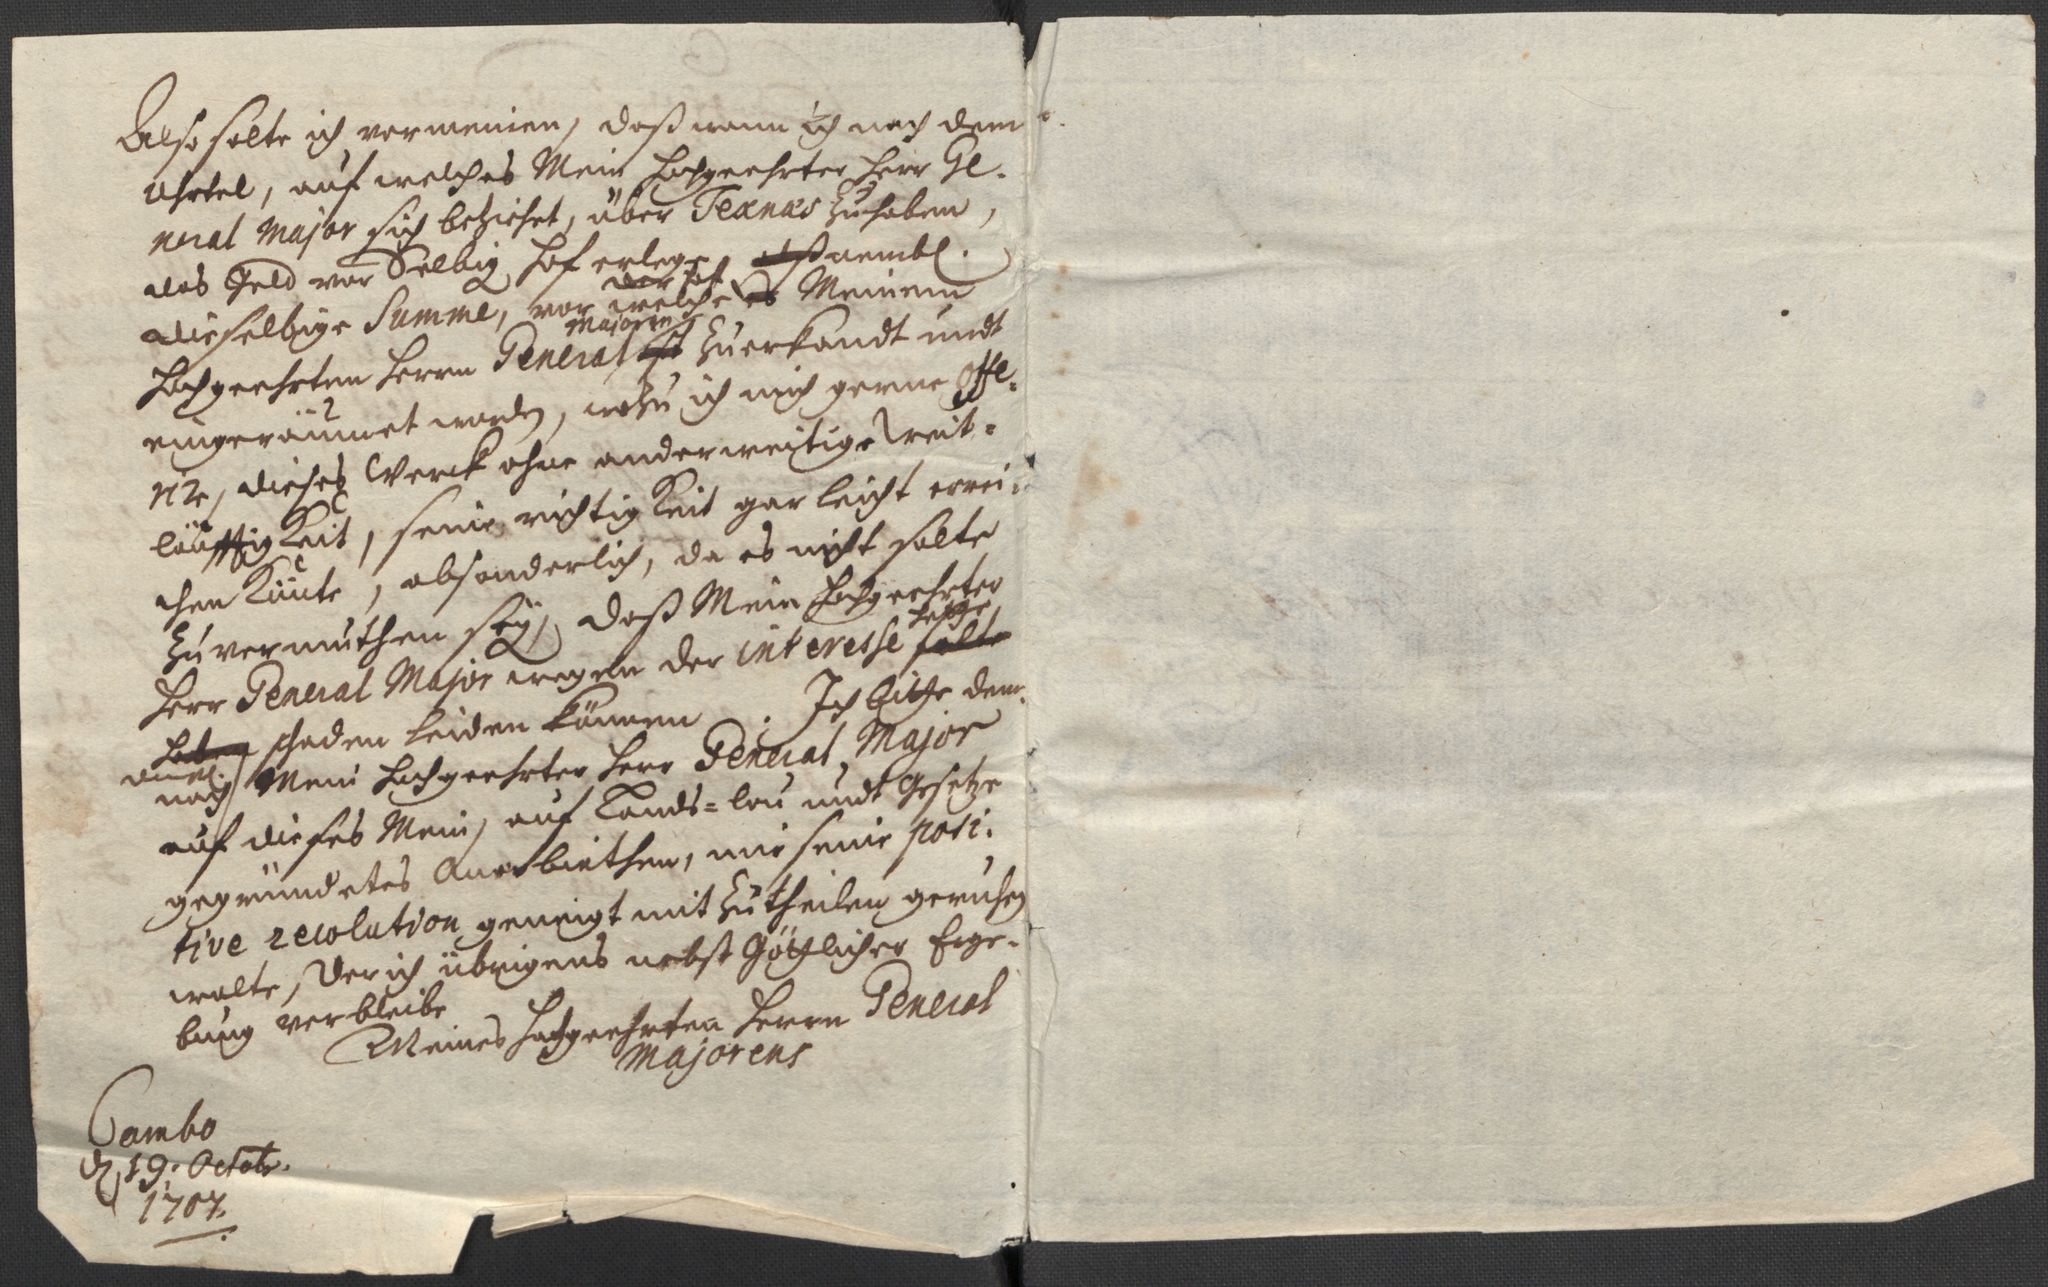 Also solte ich vermeinen, daß wann ich nach dem
Uhrtel, auf welches Mein Hochgeehrter Herr Ge-
neral Major sich beziehet, über Texnæs zu haben,
das Geld vor Selbig Hof erlege, nembl.
dieselbige Summe, vor welche es Meinem
Hochgeehrten Herrn General Majoren zuerkandt undt
eingeräumet worden, wozu ich mich gerne offe-
rire, dieses Werck ohne anderweitige Weit-
läufftigkeit, seine richtigkeit gar leicht errei-
chen künte, absonderlich, da es nicht solte
zu vermuthen sey, daß Mein Hochgeehrter
Herr General Major wegen der interesse
schaden leiden können. Ich bitte dem-
nach Mein Hochgeehrter Herr General Major
auf dieses Mein, auf Lands-lou undt Gesetze
gegründetes Anerbiethen, mir seine posi-
tive resolution geneigt mit zu theilen geruhen
wolte, Der ich übrigens nebst Göttlicher Erge-
bung verbleibe
Meines Hochgeehrten Herrn General
Majorens
Tambo
d 19. Octobr.
1707.